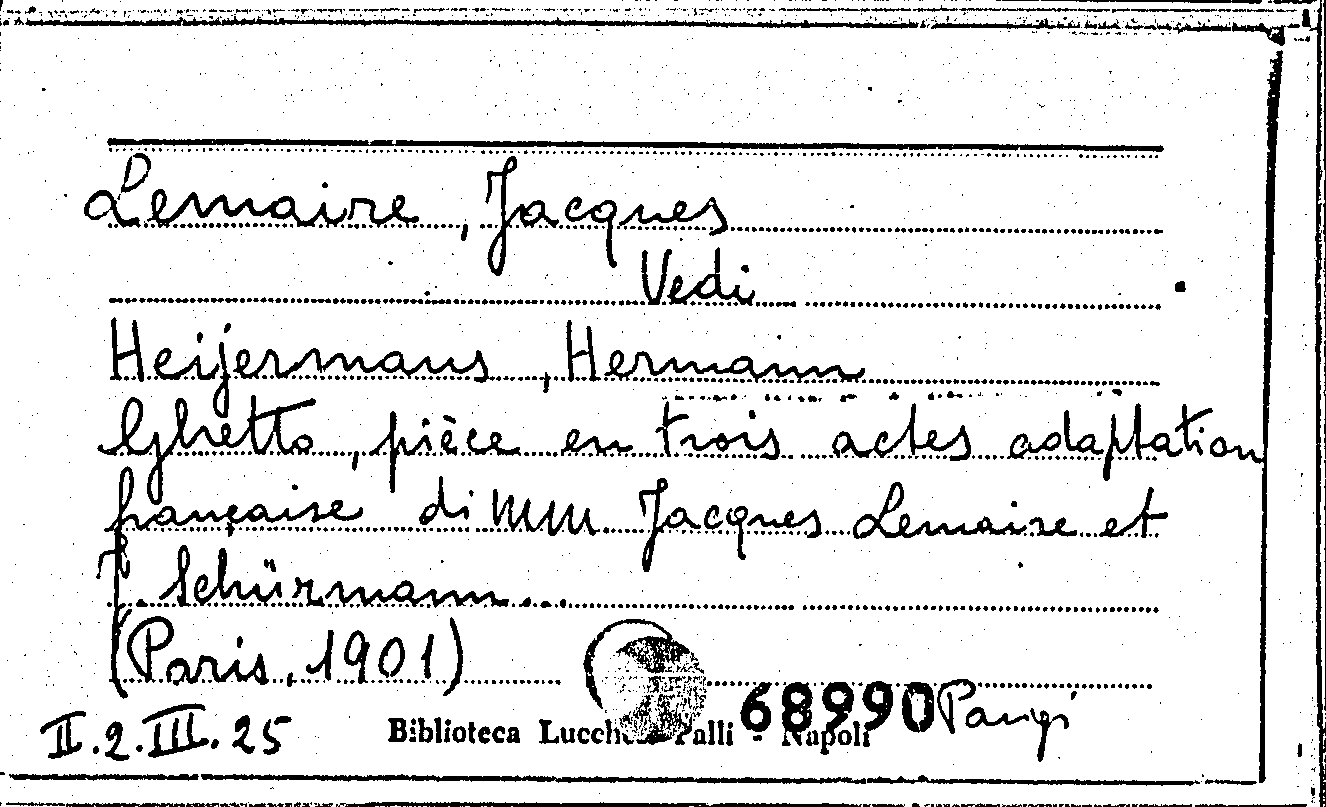 Lemaire, Jacques
Vedi
Heijermans, Hermann
Ghetto, pièce en trois actes adaptation
française di MM. Jacques Lemaire et
J. Schürmann...
(Paris, 1901)
68990 Parigi
II.2.III.25 Biblioteca Lucchesi Palli - Napoli